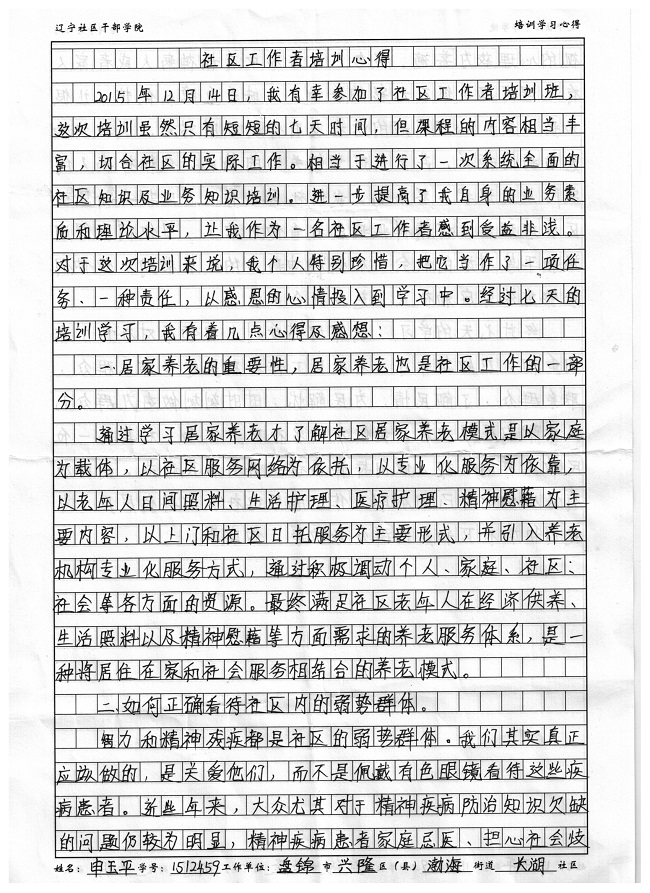 辽宁社区干部学院 培训学习心得
社区工作者培训心得
2015年12月14日，我有幸参加了社区工作者培训班，
这次培训虽然只有短短的七天时间，但课程的内容相当丰
富，切合社区的实际工作。相当于进行了一次系统全面的
社区知识及业务知识培训。进一步提高了我自身的业务素
质和理论水平，让我作为一名社区工作者感到受益非浅。
对于这次培训来说，我个人特别珍惜，把它当作了一项任
务、一种责任，以感恩的心情投入到学习中。经过七天的
培训学习，我有着几点心得及感想：
一.居家养老的重要性，居家养老也是社区工作的一部
分。
通过学习居家养老才了解社区居家养老模式是以家庭
为载体，以社区服务网络为依托，以专业化服务为依靠，
以老年人日间照料、生活护理、医疗护理、精神慰藉为主
要内容，以上门和社区日托服务为主要形式，并引入养老
机构专业化服务方式，通过积极调动个人、家庭、社区、
社会等各方面的资源。最终满足社区老年人在经济供养、
生活照料以及精神慰藉等方面需求的养老服务体系，是一
种将居住在家和社会服务相结合的养老模式。
二.如何正确看待社区内的弱势群体。
智力和精神残疾都是社区的弱势群体。我们其实真正
应该做的，是关爱他们，而不是佩戴有色眼镜看待这些疾
病患者。近些年来，大众尤其对于精神疾病防治知识欠缺
的问题仍较为明显，精神疾病患者家庭忌医、担心社会歧
姓名：申玉平 学号：1512459 工作单位：盘锦 市 兴隆 区（县） 渤海 街道 大湖 社区